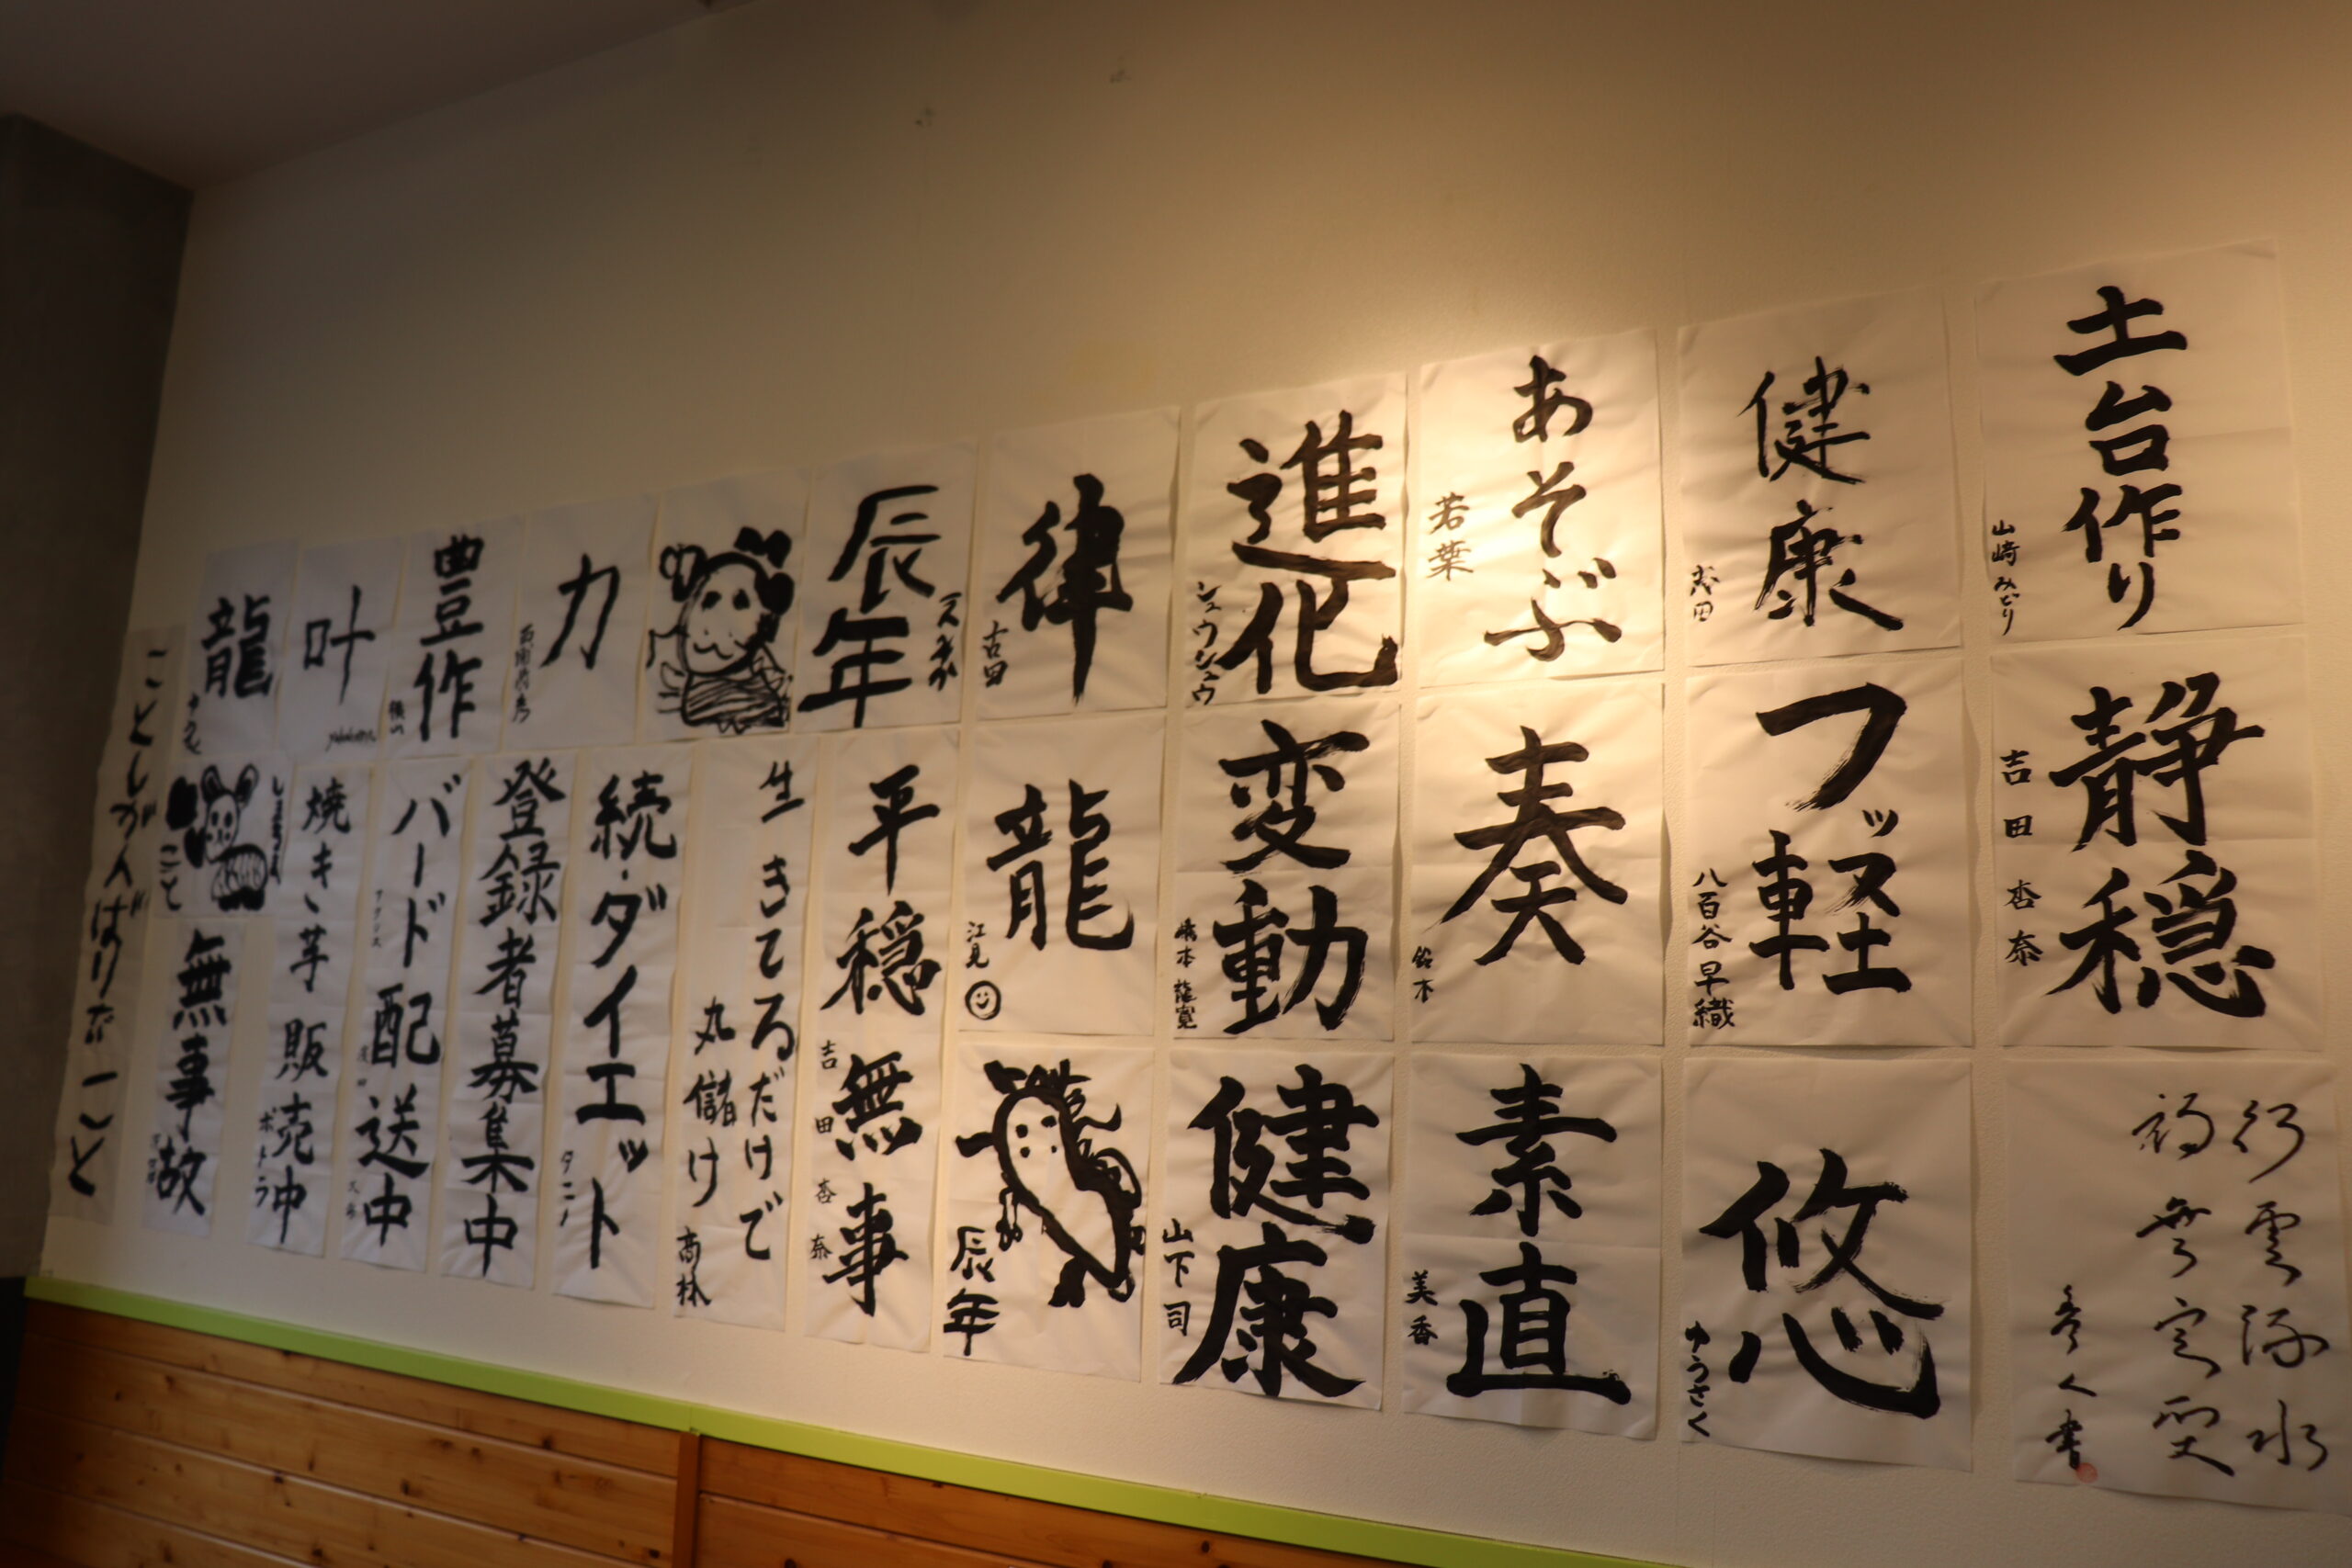 土台作り
山崎みどり
健康
あそぶ
若葉
進化
シュウシュウ
律
古田
辰年
力
豊作
叶
龍
静穏
吉田杏奈
フッ軽
八百谷早織
奏
鈴木
変動
龍
江見
平穏無事
吉田杏奈
生きてるだけで
丸儲け
高林
続・ダイエット
タニ
登録者募集中
バード配送中
焼き芋販売中
ポトラ
行雲流水
福無定
書
悠
ゆうさく
素直
美香
健康
山下司
辰年
無事故
ことしがんばりたいこと